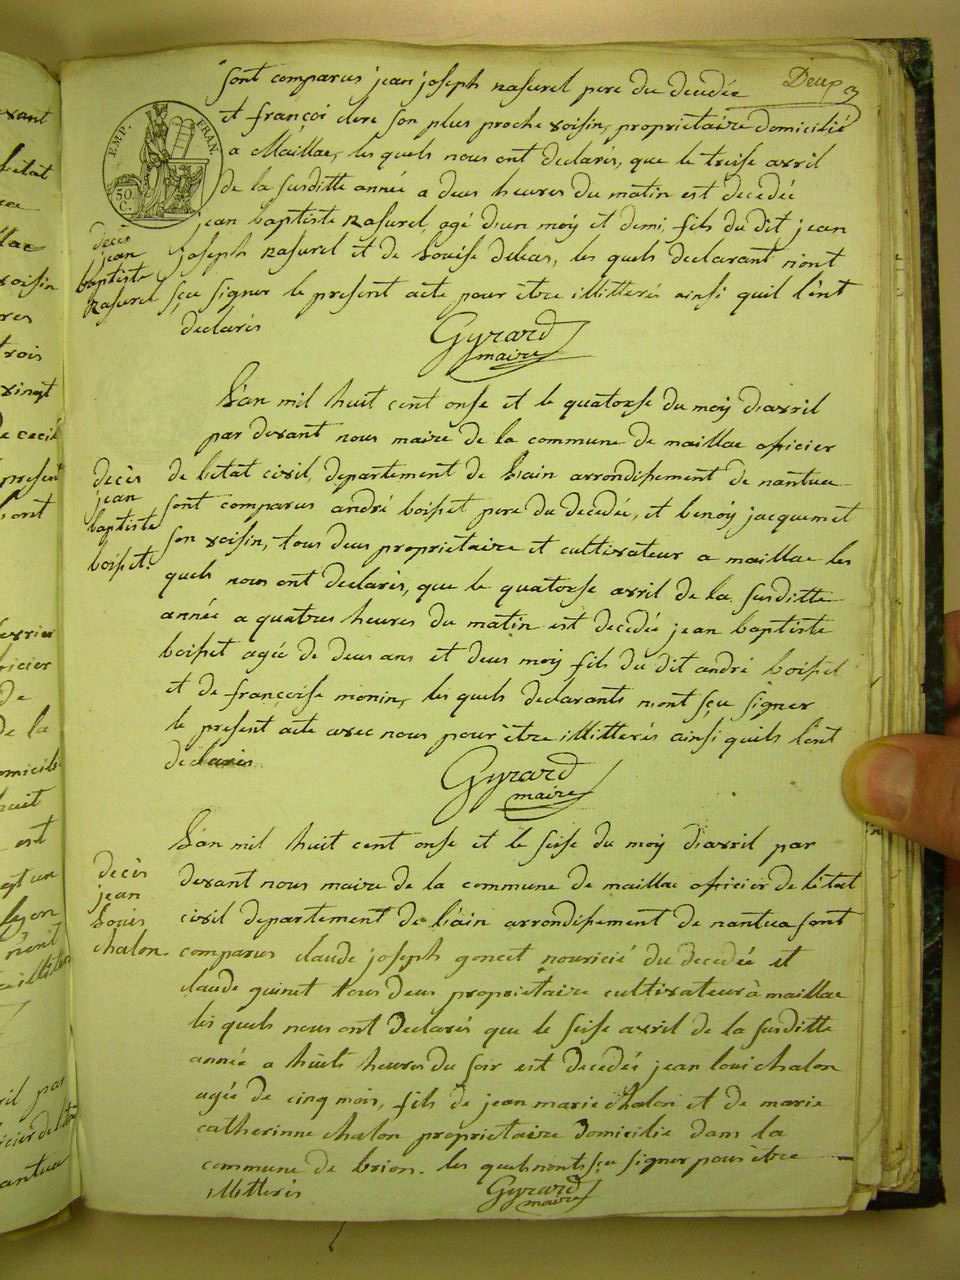 Deux
sont comparus jean joseph Rasurel pere du decedée
et françoi clere son plus proche voisin, proprietaire domicilié
a Maillac, les quels nous ont declarés, que le treise avril
de la susditte année a deus heures du matin est decedée
jean baptiste Rasurel, agé d'un moy et demi, fils du dit jean
joseph Rasurel et de Louise debeas, les quels declarant n'ont
sçu signer le present acte pour être illitterés ainsi quil l'ont
declarés
EMP. FRAN.
50. C.
decès
jean
baptiste
Rasurel
Gyrard
maire
L'an mil huit cent onse et le quatorse du moy d'avril
par devant nous maire de la commune de maillac officier
de l'etat civil, departement de L'ain arrondissement de nantua
sont comparus andré boisset pere du decedée, et benoy jacquemet
son voisin, tous deus proprietaire et cultivateur a maillac les
quels nous ont declarés, que le quatorse avril de la susditte
année a quatres heures du matin est decedée jean baptiste
boisset agée de deus ans et deus moy fils du dit andré boisset
et de françoise monin, les quels declarants n'ont sçu signer
le present acte avec nous pour être illitterés ainsi quils l'ont
declarés
decès
jean
baptiste
boisset.
Gyrard
maire
L'an mil huit cent onse et le seise du moy d'avril par
devant nous maire de la commune de maillac officier de l'état
civil departement de l'ain arrondissement de nantua sont
comparus claude joseph goncet nouricié du decedée et
claude guinet tous deus proprietaire cultivateur à maillac
les quels nous ont declarés que le seise avril de la susditte
année a huits heures du soir est decedée jean loui chalon
agée de cinq mois, fils de jean marie chalon et de marie
catherinne chalon proprietaire domicilie dans la
commune de brion. les quels n'ont sçu signer pour être
illitterés
decès
jean
Louis
chalon.
Gyrard
maire